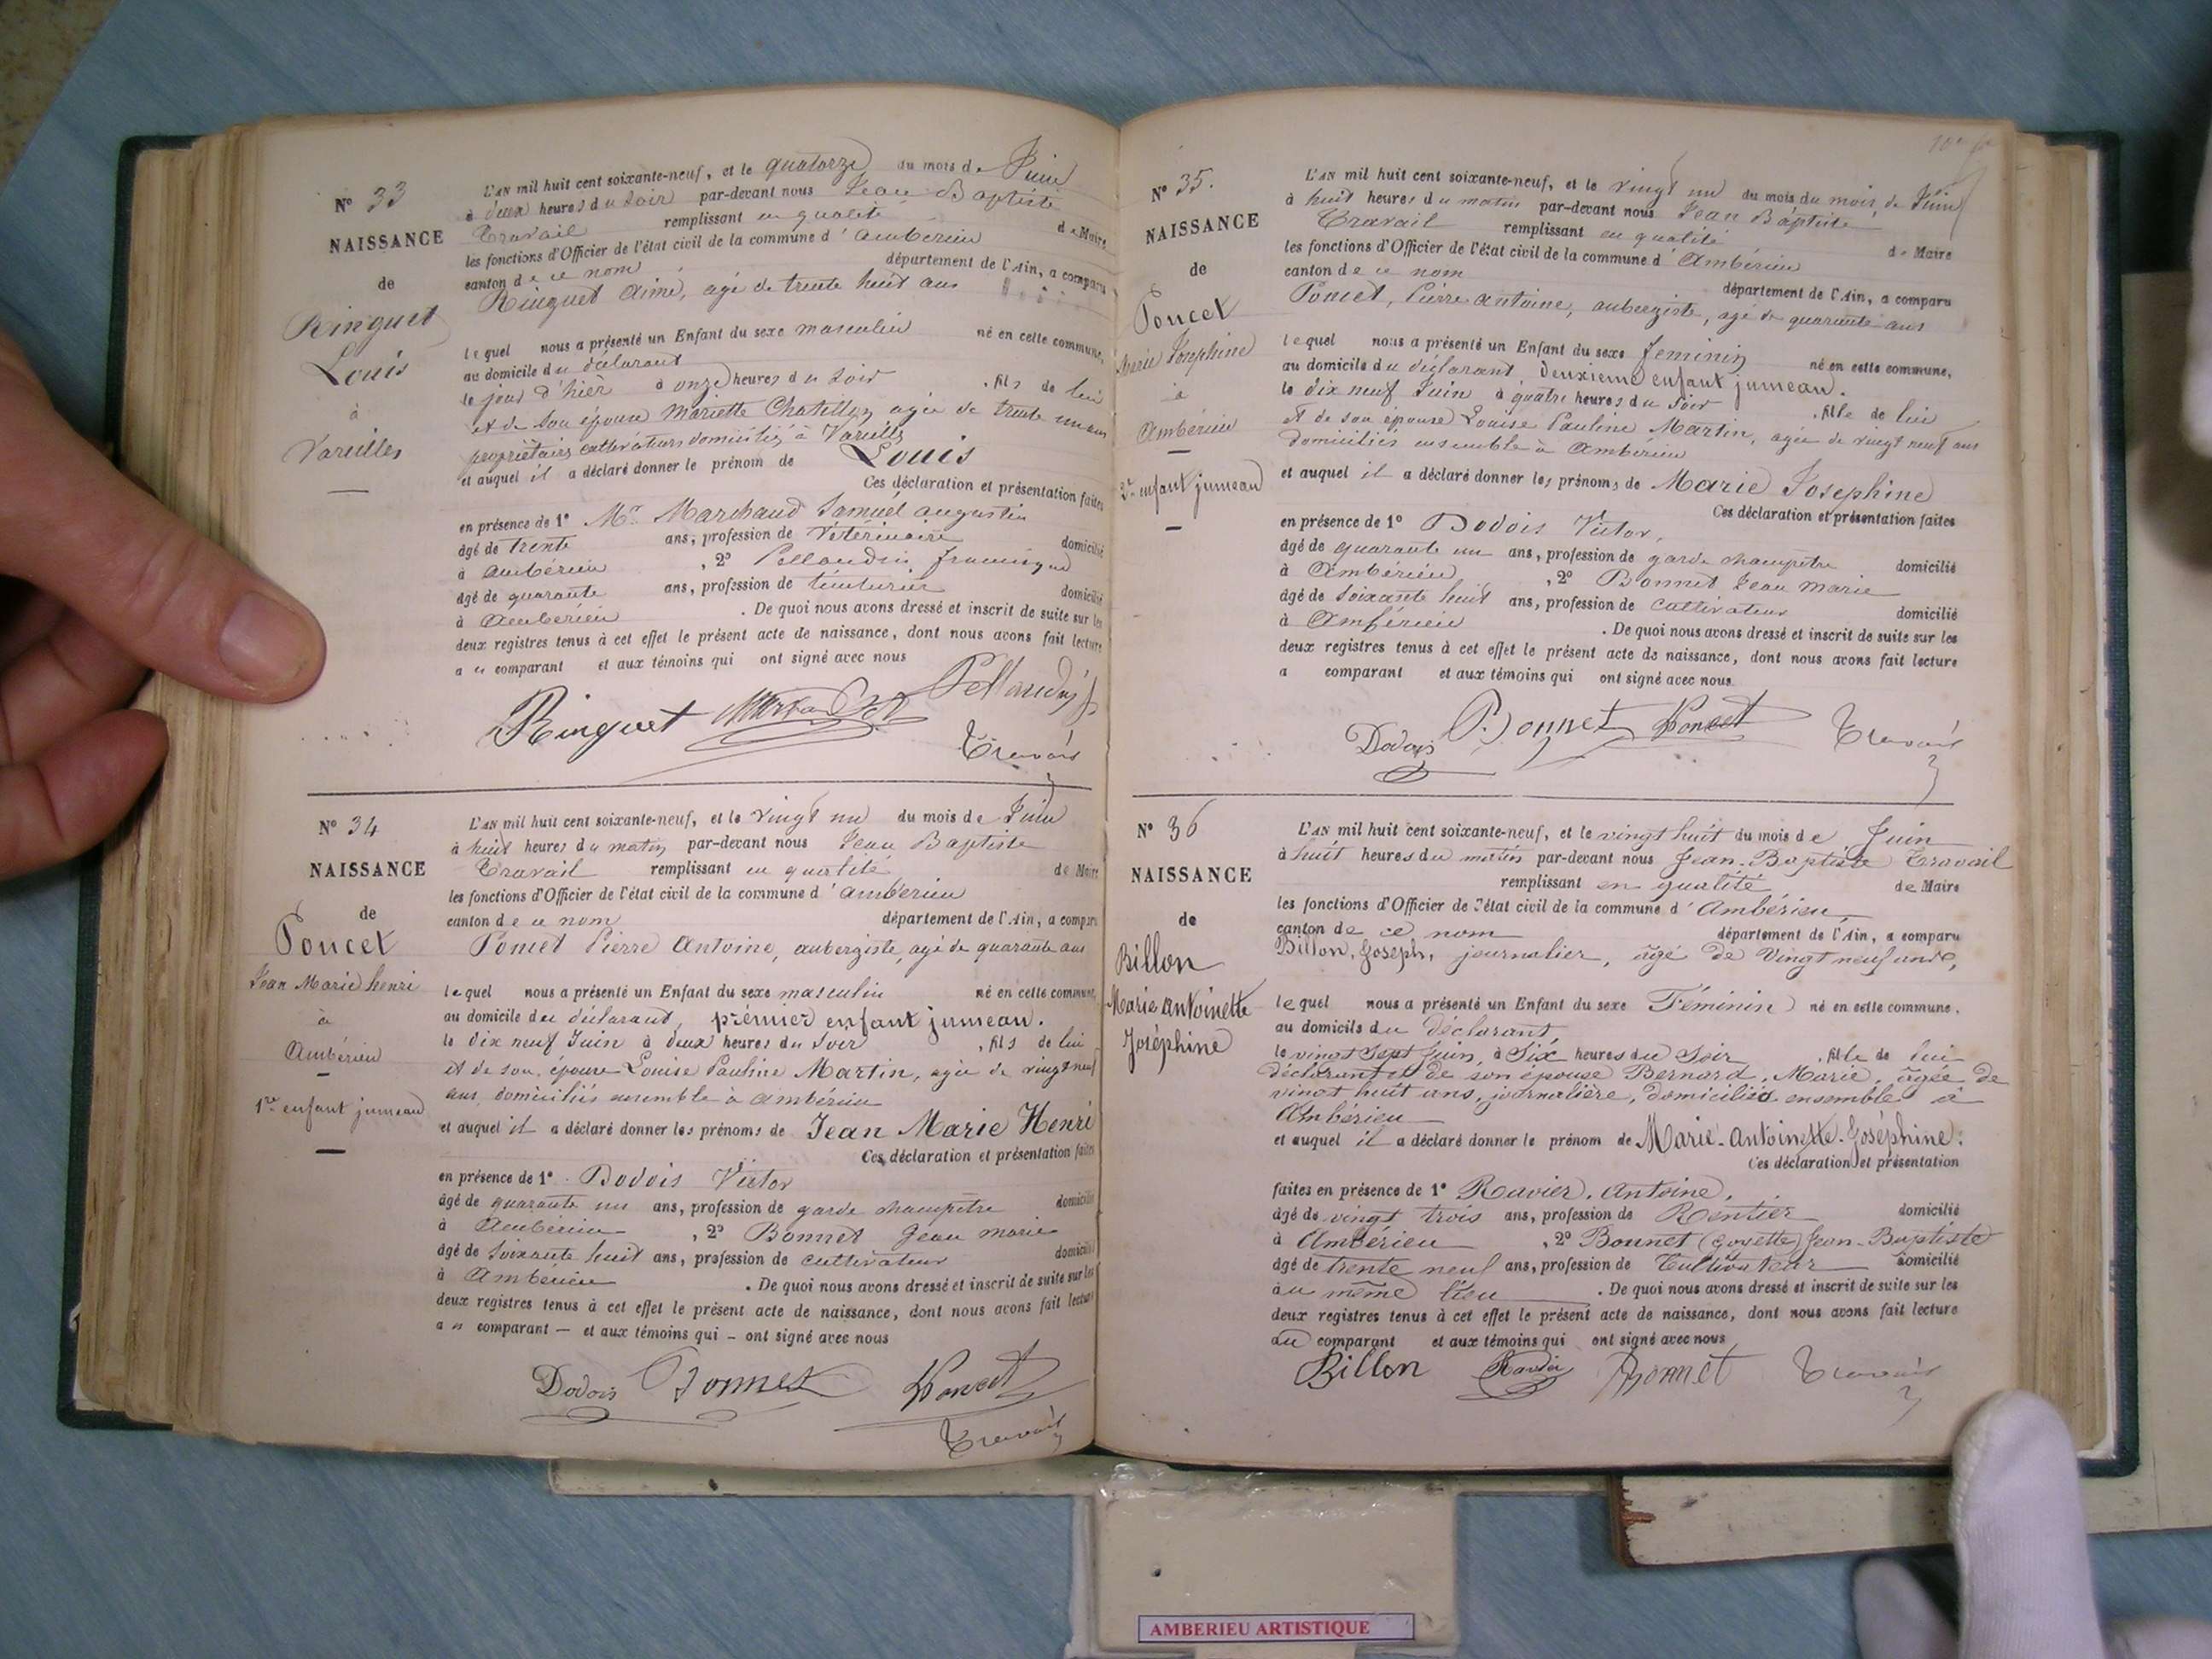 Nº 33
NAISSANCE
de
Ringuet
Louis
à
Vareilles
L'AN mil huit cent soixante-neuf, et le quatorze du mois de Juin
à deux heures du soir par-devant nous Jean Baptiste
Travail remplissant en qualité de Maire
les fonctions d'Officier de l'état civil de la commune d'Ambérieu
canton de ce nom département de l'Ain, a comparu
Ringuet Aimé, agé de trente huit ans
lequel nous a présenté un Enfant du sexe masculin né en cette commune,
au domicile du déclarant
le jour d'hièr à onze heures du soir, fils de lui
et de son épouse Mariette Chatillon agée de trente un ans
propriétaires cultivateurs domiciliés à Vareilles
et auquel il a déclaré donner le prénom de Louis
Ces déclaration et présentation faites
en présence de 1º Mr Marchand Samuel augustin
âgé de trente ans, profession de Vétérinaire domicilié
à Ambérieu, 2º Pellaudin francisque
âgé de quarante ans, profession de teinturier domicilié
à Ambérieu. De quoi nous avons dressé et inscrit de suite sur les
deux registres tenus à cet effet le présent acte de naissance, dont nous avons fait lecture
au comparant et aux témoins qui ont signé avec nous
Ringuet
Nº 34
NAISSANCE
de
Poncet
Jean Marie henri
à
Ambérieu
1er enfant jumeau
L'AN mil huit cent soixante-neuf, et le vingt un du mois de Juin
à huit heures du matin par-devant nous Jean Baptiste
Travail remplissant en qualité de Maire
les fonctions d'Officier de l'état civil de la commune d'Ambérieu
canton de ce nom département de l'Ain, a comparu
Poncet Pierre Antoine, aubergiste, agé de quarante ans
lequel nous a présenté un Enfant du sexe masculin né en cette commune,
au domicile du déclarant, premier enfant jumeau.
le dix neuf Juin à deux heures du soir, fils de lui
et de son épouse Louise Pauline Martin, agée de vingt neuf
ans domiciliés ensemble à Ambérieu
et auquel il a déclaré donner les prénoms de Jean Marie Henri
Ces déclaration et présentation faites
en présence de 1º Dodois Victor
âgé de quarante un ans, profession de garde champêtre domicilié
à Ambérieu, 2º Bonnet Jean marie
âgé de soixante huit ans, profession de cultivateur domicilié
à Ambérieu. De quoi nous avons dressé et inscrit de suite sur les
deux registres tenus à cet effet le présent acte de naissance, dont nous avons fait lecture
au comparant — et aux témoins qui – ont signé avec nous
Dodois Bonnet Poncet
Nº 35.
NAISSANCE
de
Poncet
Marie Josephine
à
Ambérieu
2e enfant jumeau
L'AN mil huit cent soixante-neuf, et le vingt un du mois du mois de Juin
à huit heures du matin par-devant nous Jean Baptiste
Travail remplissant en qualité de Maire
les fonctions d'Officier de l'état civil de la commune d'Ambérieu
canton de ce nom département de l'Ain, a comparu
Poncet, Pierre antoine, aubergiste, agé de quarante ans
lequel nous a présenté un Enfant du sexe feminin né en cette commune,
au domicile du déclarant deuxieme enfant jumeau.
le dix neuf Juin à quatre heures du soir, fille de lui
et de son épouse Louise Pauline Martin, agée de vingt neuf ans
domiciliés ensemble à Ambérieu
et auquel il a déclaré donner les prénoms de Marie Josephine
Ces déclaration et présentation faites
en présence de 1º Dodois Victor,
âgé de quarante un ans, profession de garde champêtre domicilié
à Ambérieu, 2º Bonnet Jean marie
âgé de soixante huit ans, profession de cultivateur domicilié
à Ambérieu. De quoi nous avons dressé et inscrit de suite sur les
deux registres tenus à cet effet le présent acte de naissance, dont nous avons fait lecture
a comparant et aux témoins qui ont signé avec nous
Dodois Bonnet Poncet
Nº 36
NAISSANCE
de
Billon
Marie Antoinette
Joséphine
L'AN mil huit cent soixante-neuf, et le vingt huit du mois de Juin
à huit heures du matin par-devant nous Jean-Baptiste Travail
remplissant en qualité de Maire
les fonctions d'Officier de l'état civil de la commune d'Ambérieu,
canton de ce nom département de l'Ain, a comparu
Billon, Joseph, journalier, âgé de vingt neuf ans,
lequel nous a présenté un Enfant du sexe Féminin né en cette commune,
au domicile du déclarant,
le vingt sept Juin, à Six heures du Soir, fille de lui
déclarant et de son épouse Bernard, Marie, âgée de
vingt huit ans, journalière, domiciliés ensemble à
Ambérieu
et auquel il a déclaré donner le prénom de Marie-Antoinette-Joséphine.
Ces déclaration et présentation
faites en présence de 1º Ravier, Antoine,
âgé de vingt trois ans, profession de Rentier domicilié
à Ambérieu, 2º Bonnet (Goyette) Jean-Baptiste
âgé de trente neuf ans, profession de Cultivateur domicilié
au même lieu. De quoi nous avons dressé et inscrit de suite sur les
deux registres tenus à cet effet le présent acte de naissance, dont nous avons fait lecture
au comparant et aux témoins qui ont signé avec nous
Billon Ravier Bonnet
AMBERIEU ARTISTIQUE